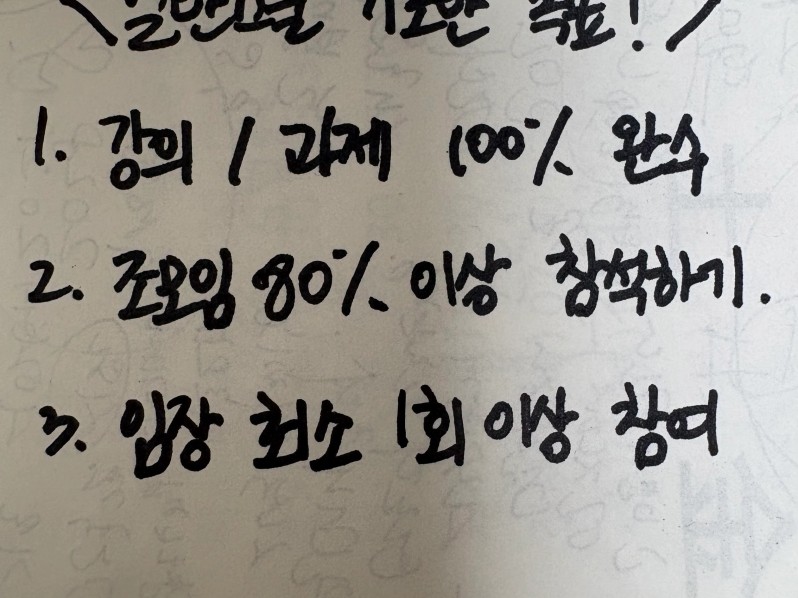 목표!>
1. 강의 / 과제 100% 완수
2. 조모임 80% 이상 참석하기.
3. 임장 최소 1회 이상 참여